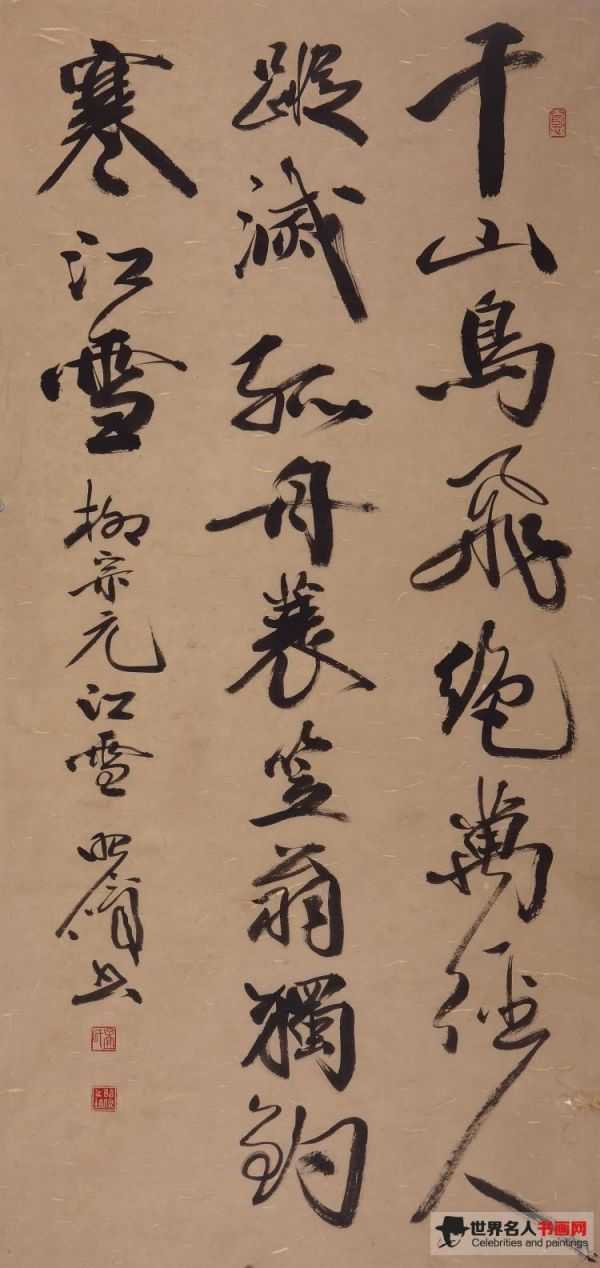 千山鳥飛絕萬徑人
蹤滅孤舟蓑笠翁獨釣
寒江雪
柳宗元江雪
書
世界名人书画网
Celebrities and paintings